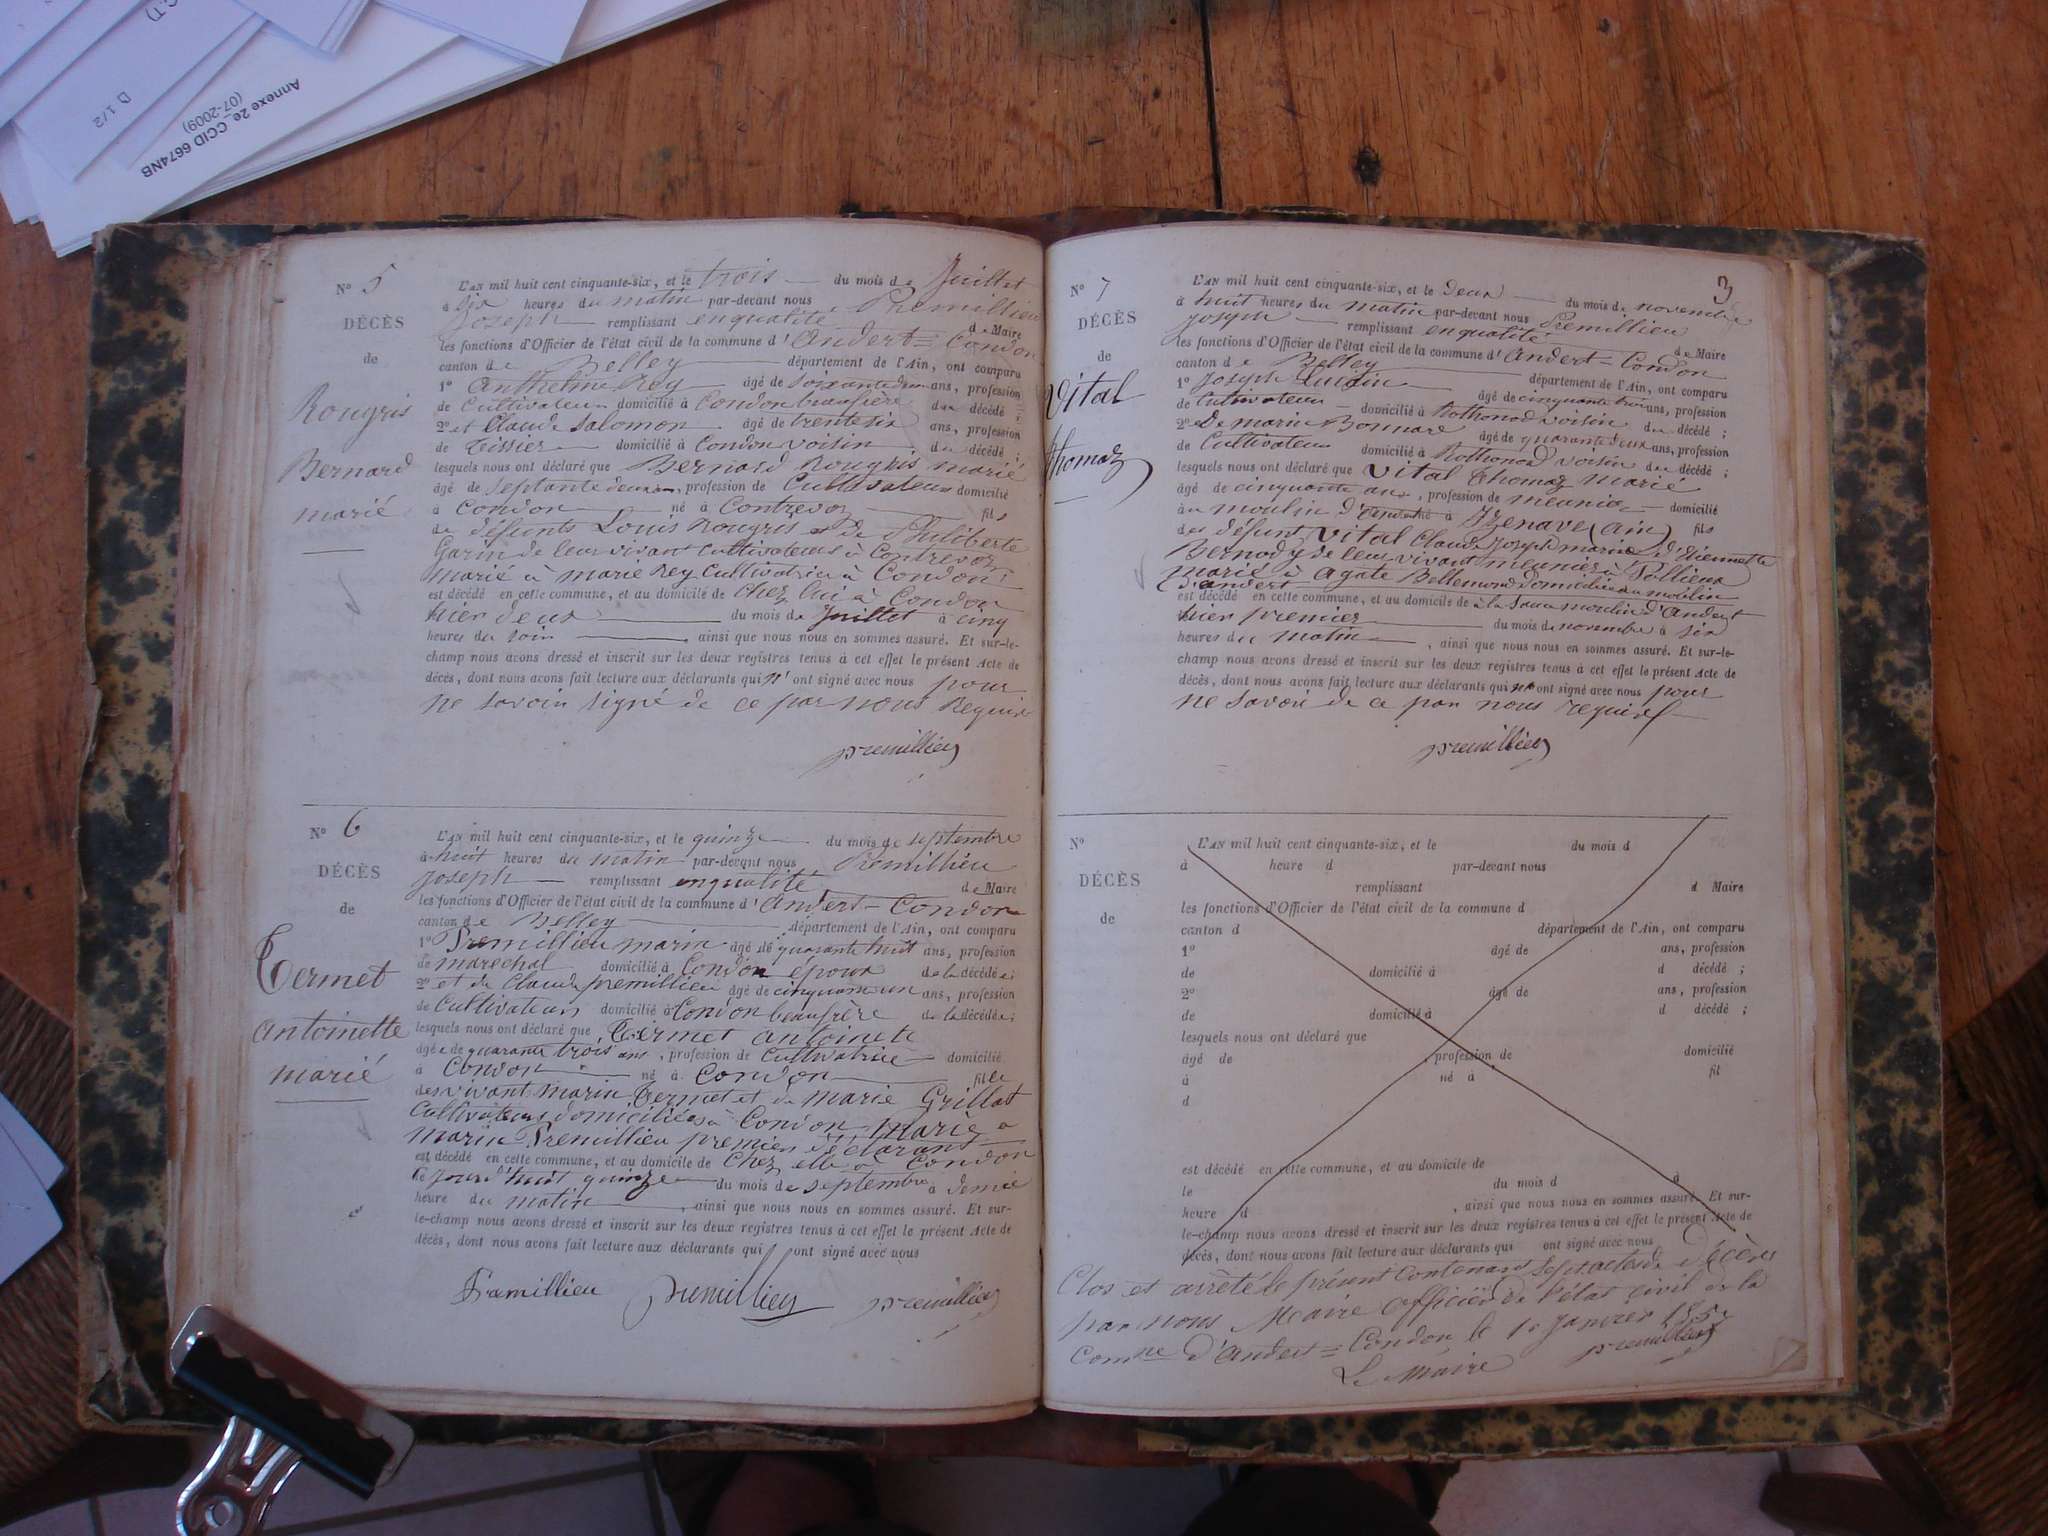 D 1/2
Annexe 2e_CCID 6674NB
(07-2009)
N° 5
DÉCÈS
de
Rougris
Bernard
marié
L'AN mil huit cent cinquante-six, et le trois du mois de Juillet
à six heures du matin par-devant nous Premillieu
Joseph remplissant en qualité de Maire
les fonctions d'Officier de l'état civil de la commune d'Andert=Condon
canton de Belley département de l'Ain, ont comparu
1° Anthelme Rey âgé de soixante deux ans, profession
de Cultivateur domicilié à Condon beaufrère du décédé ;
2° et Claude Salomon âgé de trente six ans, profession
de Tissier domicilié à Condon voisin du décédé ;
lesquels nous ont déclaré que Bernard Rougris marié
âgé de septante deux, profession de Cultivateur domicilié
à Condon né à Contrevoz fils
de défunts Louis Rougris et de Philiberte
Garin de leur vivant cultivateurs à Contrevoz
marié à marie Rey Cultivatrice à Condon
est décédé en cette commune, et au domicile de chez lui à Condon
hier deux du mois de Juillet à cinq
heures du soir , ainsi que nous nous en sommes assuré. Et sur-le-
champ nous avons dressé et inscrit sur les deux registres tenus à cet effet le présent Acte de
décès, dont nous avons fait lecture aux déclarants qui n'ont signé avec nous pour
ne savoir signé de ce par nous Requis
premillieu
N° 6
DÉCÈS
de
Termet
Antoinette
marié
L'AN mil huit cent cinquante-six, et le quinze du mois de septembre
à huit heures du matin par-devant nous Premillieu
Joseph remplissant en qualité de Maire
les fonctions d'Officier de l'état civil de la commune d'Andert=Condon
canton de Belley département de l'Ain, ont comparu
1° Premillieu marin âgé de quarante huit ans, profession
de marechal domicilié à Condon époux de la décédée ;
2° et de Claude premillieu âgé de cinquante un ans, profession
de Cultivateurs domicilié à Condon beaufrère de la décédée ;
lesquels nous ont déclaré que Termet antoinete
âgée de quarante trois ans, profession de Cultivatrice domicilié
à Condon né à Condon fille
des vivant marin Termet et de marie Grillat
Cultivateurs domiciliées à Condon Marié a
marin Premillieu premier déclarant
est décédé en cette commune, et au domicile de Chez elle à Condon
le jourd'huit quinze du mois de septembre à demie
heure du matin , ainsi que nous nous en sommes assuré. Et sur-
le-champ nous avons dressé et inscrit sur les deux registres tenus à cet effet le présent Acte de
décès, dont nous avons fait lecture aux déclarants qui ont signé avec nous
Pramillieu premillieu premillieu
3
N° 7
DÉCÈS
de
Vital
Thomaz
L'AN mil huit cent cinquante-six, et le deux du mois de novembre
à huit heures du matin par-devant nous Premillieu
Joseph remplissant en qualité de Maire
les fonctions d'Officier de l'état civil de la commune d'Andert=Condon
canton de Belley département de l'Ain, ont comparu
1° Joseph âgé de cinquante trois ans, profession
de Cultivateur domicilié à Rothonod voisin du décédé ;
2° De marin Bonnard âgé de quarante deux ans, profession
de Cultivateur domicilié à Rothonod voisin du décédé ;
lesquels nous ont déclaré que Vital Thomaz Marié
âgé de cinquante ans, profession de meunier domicilié
au moulin d'andert né à Izenave (ain) fils
des défunt Vital Claude Joseph marine d'Etiennette
Bernody de leur vivant meunier à Pollieux
marié à Agate Bellemond domicilié au moulin
d'andert
est décédé en cette commune, et au domicile de à la moulin d'Andert
hier premier du mois de novembre à six
heures du matin , ainsi que nous nous en sommes assuré. Et sur-le-
champ nous avons dressé et inscrit sur les deux registres tenus à cet effet le présent Acte de
décès, dont nous avons fait lecture aux déclarants qui n'ont signé avec nous pour
ne savoir de ce par nous requis
premillieu
N°
DÉCÈS
de
L'AN mil huit cent cinquante-six, et le du mois d
à heure d par-devant nous
remplissant d Maire
les fonctions d'Officier de l'état civil de la commune d
canton d département de l'Ain, ont comparu
1° âgé de ans, profession
de domicilié à d décédé ;
2° âgé de ans, profession
de domicilié à d décédé ;
lesquels nous ont déclaré que
âgé de , profession de domicilié
à né à fil
d
est décédé en cette commune, et au domicile de
le du mois d à
heure d , ainsi que nous nous en sommes assuré. Et sur-
le-champ nous avons dressé et inscrit sur les deux registres tenus à cet effet le présent Acte de
décès, dont nous avons fait lecture aux déclarants qui ont signé avec nous
Clos et arrêté le présent Contenant Sept actes de Décès
par nous Maire officier de l'état civil de la
Comne d'Andert=Condon le 1er Janvier 1857
Le Maire premillieu